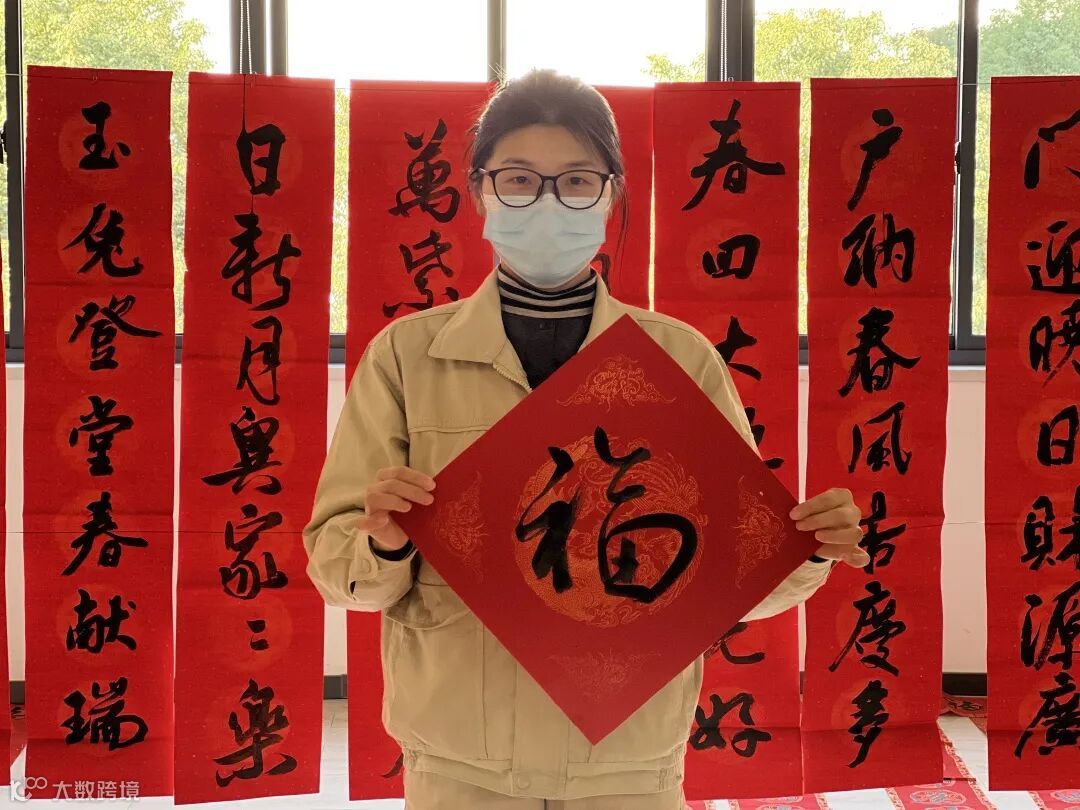 玉兔登堂春献瑞
日新月異家〻樂
萬紫
春回大
好
户纳春風吉慶多
门迎曉日財源廣
福
大数跨境